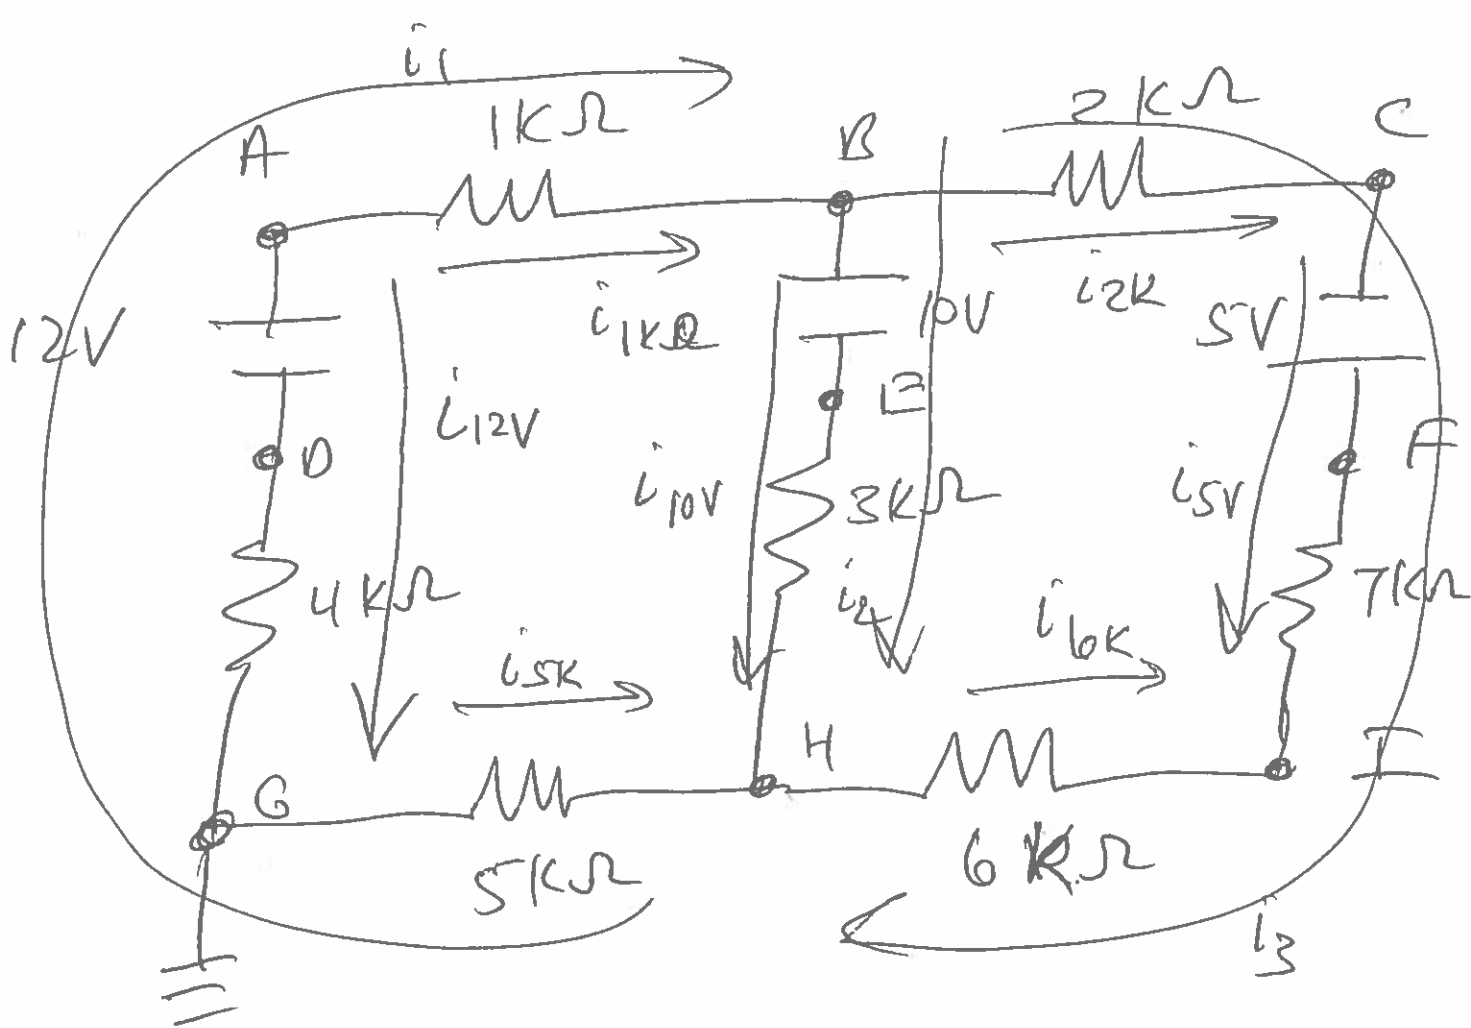 i1
1KΩ
2KΩ
A
B
C
12V
i1KΩ
10V
i2K
5V
i12V
E
D
i10V
3KΩ
i5V
F
4KΩ
i2
7KΩ
i5K
i6K
G
H
I
5KΩ
6KΩ
i3